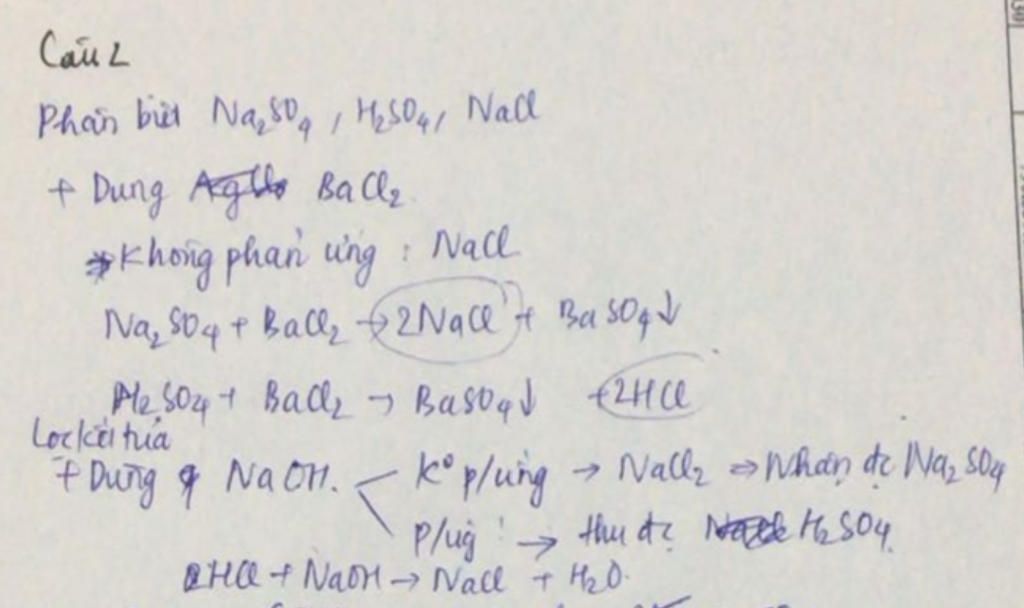 Câu 2
Phân biệt Na₂SO₄, H₂SO₄, NaCl
+ Dung BaCl₂
Không phản ứng : NaCl
Na₂SO₄ + BaCl₂ → 2NaCl + BaSO₄↓
H₂SO₄ + BaCl₂ → BaSO₄↓ + 2HCl
Lọc kết tủa
+ Dùng NaOH. K° p/ứng → NaCl₂ ⇒ Nhận đc Na₂SO₄
p/ứg → thu đc H₂SO₄.
HCl + NaOH → NaCl + H₂O.